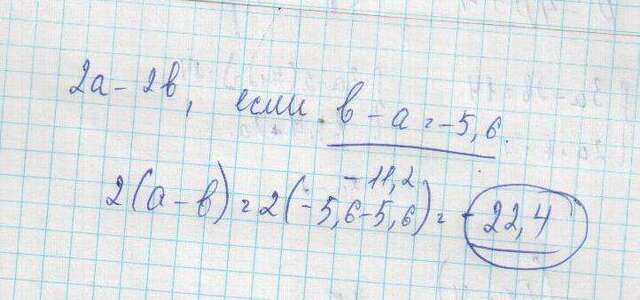 2a - 2b, если b - a = -5,6.
-11,2
2(a - b) = 2(-5,6-5,6) = -22,4